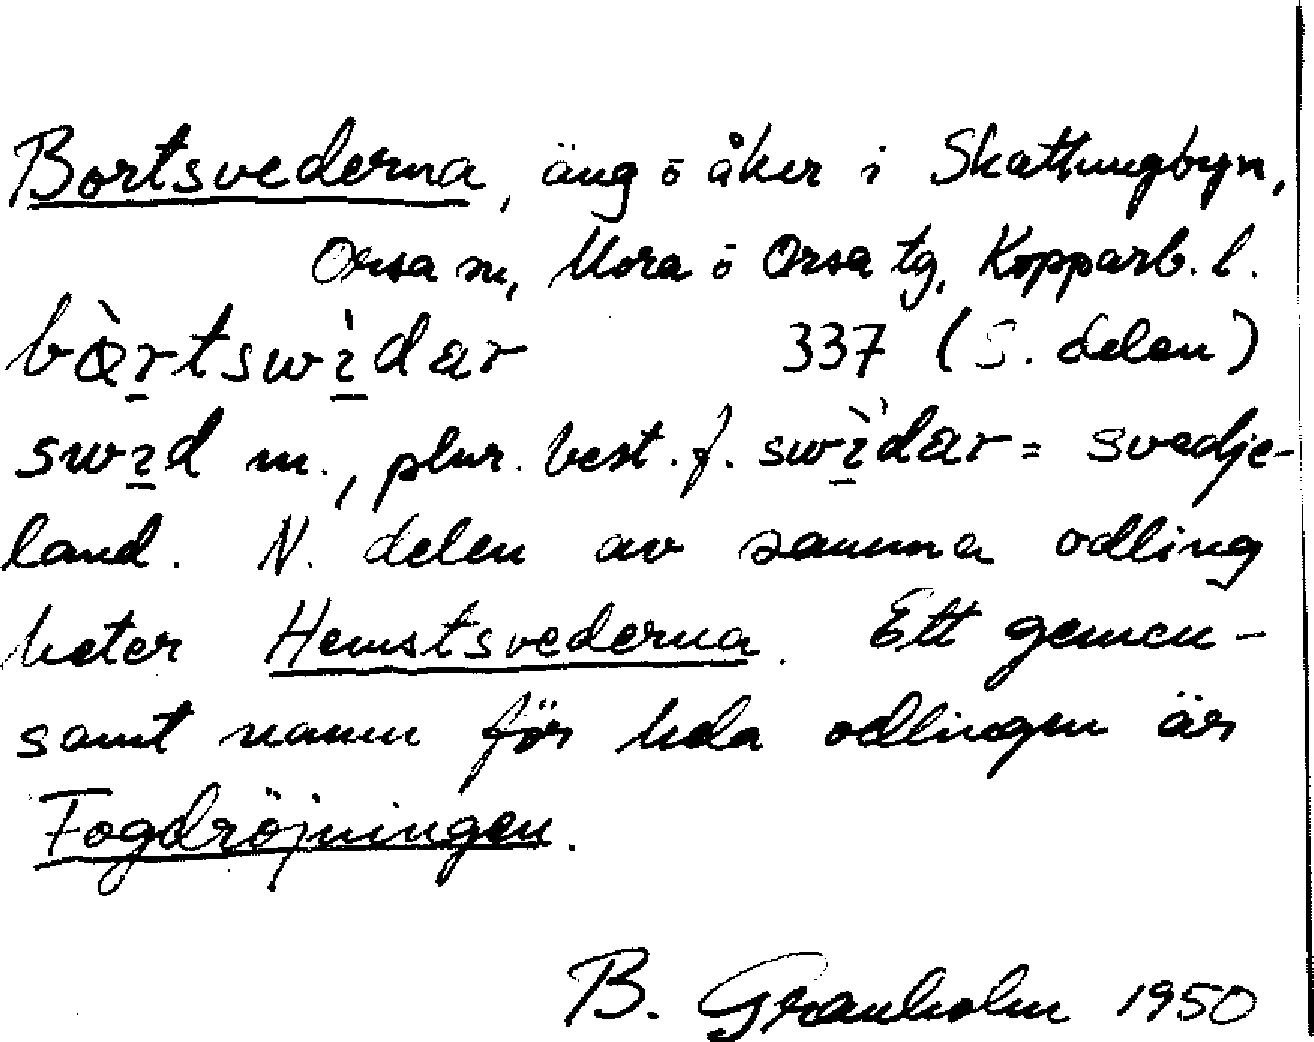 Bortsvederna, äng o åker i Skattungbyn,
Orsa sn, Mora o Orsa tg, Kopparb. l.
bàrtswìdar 337 (S. delen)
swid m., plur. best. f. swìdar = svedje-
land. N. delen av samma odling
heter Hemstsvederna. Ett gemen-
samt namn för hela odlingen är
Fogdröjningen.
B. Granholm 1950